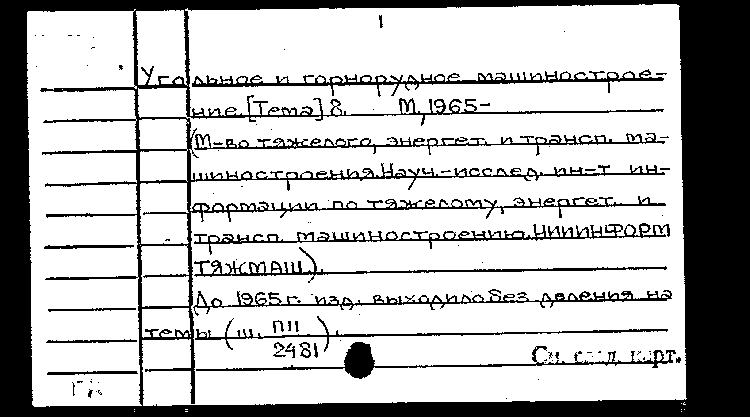 1
Угольное и горнорудное машинострое-
ние. [Тема] 8. М, 1965-
(М-во тяжелого, энергет. и трансп. ма-
шиностроения. Науч.-исслед. ин-т ин-
формации по тяжелому, энергет. и
трансп. машиностроению. НИИИНФОРМ
ТЯЖМАШ).
До 1965 г. изд. выходило без деления на
темы (ш. ПII
2481).
См. след. карт.